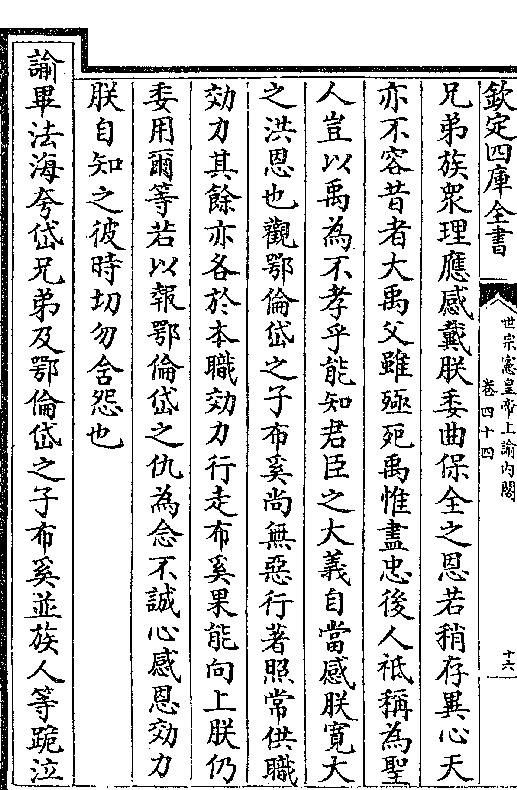 欽定四庫全書
世宗憲皇帝上諭內閣
卷四十四
十六
兄弟族衆理應感戴朕委曲保全之恩若稍存異心天
亦不容昔者大禹父雖殛死禹惟盡忠後人祗稱為聖
人豈以禹為不孝乎能知君臣之大義自當感朕寬大
之洪恩也觀鄂倫岱之子布奚尚無惡行著照常供職
効力其餘亦各於本職効力行走布奚果能向上朕仍
委用爾等若以報鄂倫岱之仇為念不誠心感恩効力
朕自知之彼時切勿舍怨也
諭畢法海夸岱兄弟及鄂倫岱之子布奚並族人等跪泣